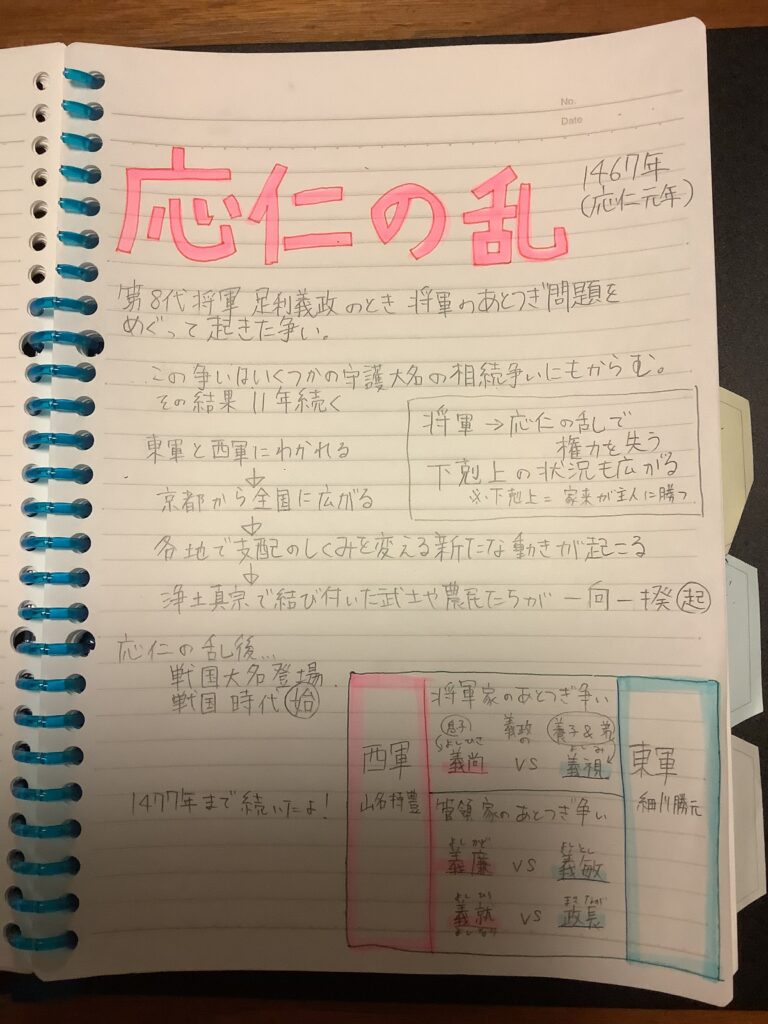 No.
Date
応仁の乱
1467年
(応仁元年)
第8代将軍 足利義政のとき 将軍のあとつぎ問題を
めぐって起きた争い。
この争いはいくつかの守護大名の相続争いにもからむ。
その結果 11年続く
東軍と西軍にわかれる
↓
京都から全国に広がる
↓
各地で支配のしくみを変える新たな動きが起こる
↓
浄土真宗で結び付いた武士や農民たちが 一向一揆 起
将軍→応仁の乱で
権力を失う
下剋上の状況も広がる
※下剋上=家来が主人に勝つ
応仁の乱後…
戦国大名登場
戦国時代 始
1477年まで続いたよ!
西軍
山名持豊
将軍家のあとつぎ争い
息子 義政の 養子&弟
よしひさ よしみ
義尚 VS 義視
管領家のあとつぎ争い
よしかど よしとし
義廉 VS 義敏
よしひろ まさなが
義就 VS 政長
よしなり
東軍
細川勝元